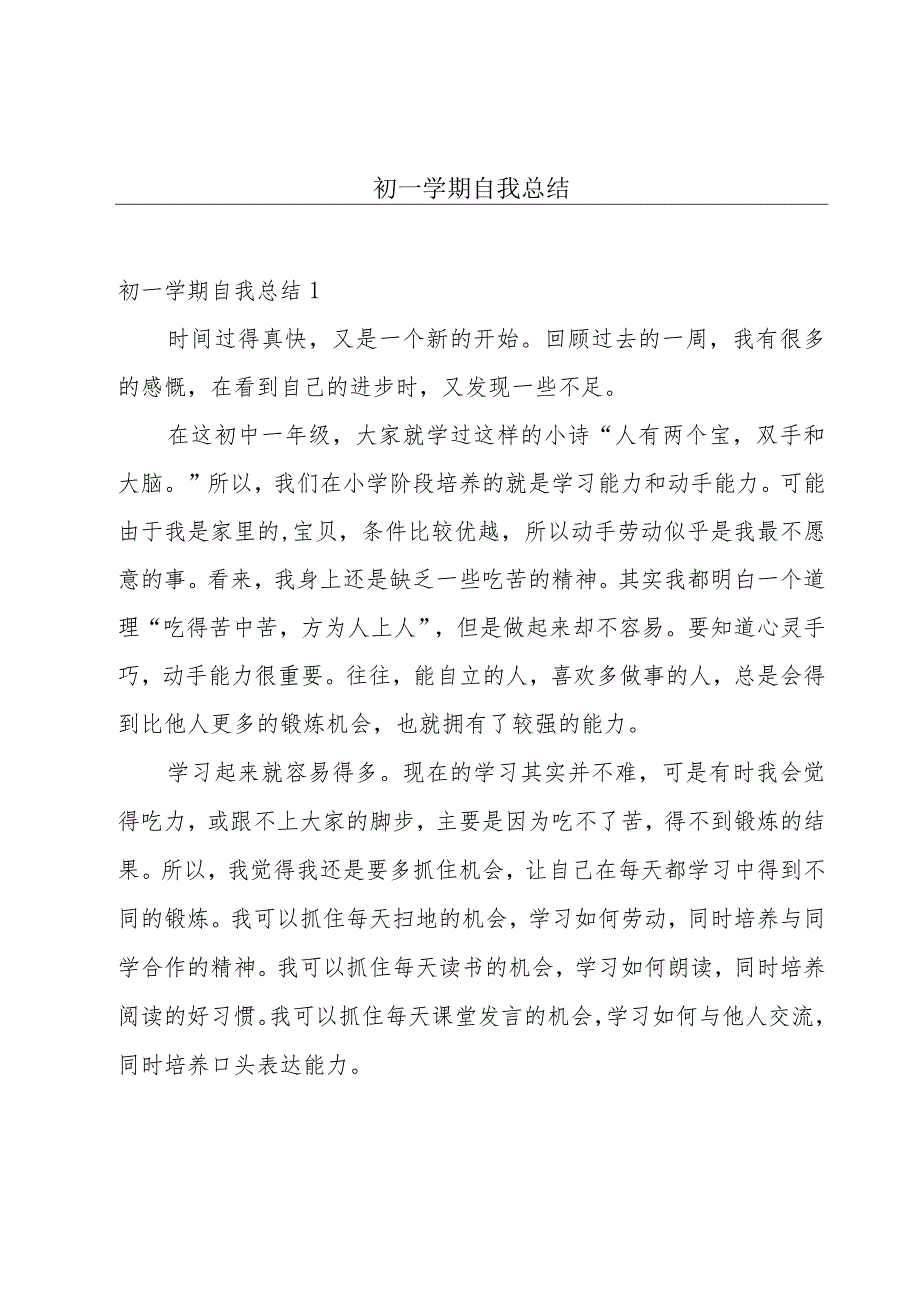 初一学期自我总结
初一学期自我总结1
时间过得真快，又是一个新的开始。回顾过去的一周，我有很多
的感慨，在看到自己的进步时，又发现一些不足。
在这初中一年级，大家就学过这样的小诗“人有两个宝，双手和
大脑。”所以，我们在小学阶段培养的就是学习能力和动手能力。可能
由于我是家里的,宝贝，条件比较优越，所以动手劳动似乎是我最不愿
意的事。看来，我身上还是缺乏一些吃苦的精神。其实我都明白一个道
理“吃得苦中苦，方为人上人”，但是做起来却不容易。要知道心灵手
巧，动手能力很重要。往往，能自立的人，喜欢多做事的人，总是会得
到比他人更多的锻炼机会，也就拥有了较强的能力。
学习起来就容易得多。现在的学习其实并不难，可是有时我会觉
得吃力，或跟不上大家的脚步，主要是因为吃不了苦，得不到锻炼的结
果。所以，我觉得我还是要多抓住机会，让自己在每天都学习中得到不
同的锻炼。我可以抓住每天扫地的机会，学习如何劳动，同时培养与同
学合作的精神。我可以抓住每天读书的机会，学习如何朗读，同时培养
阅读的好习惯。我可以抓住每天课堂发言的机会，学习如何与他人交流，
同时培养口头表达能力。